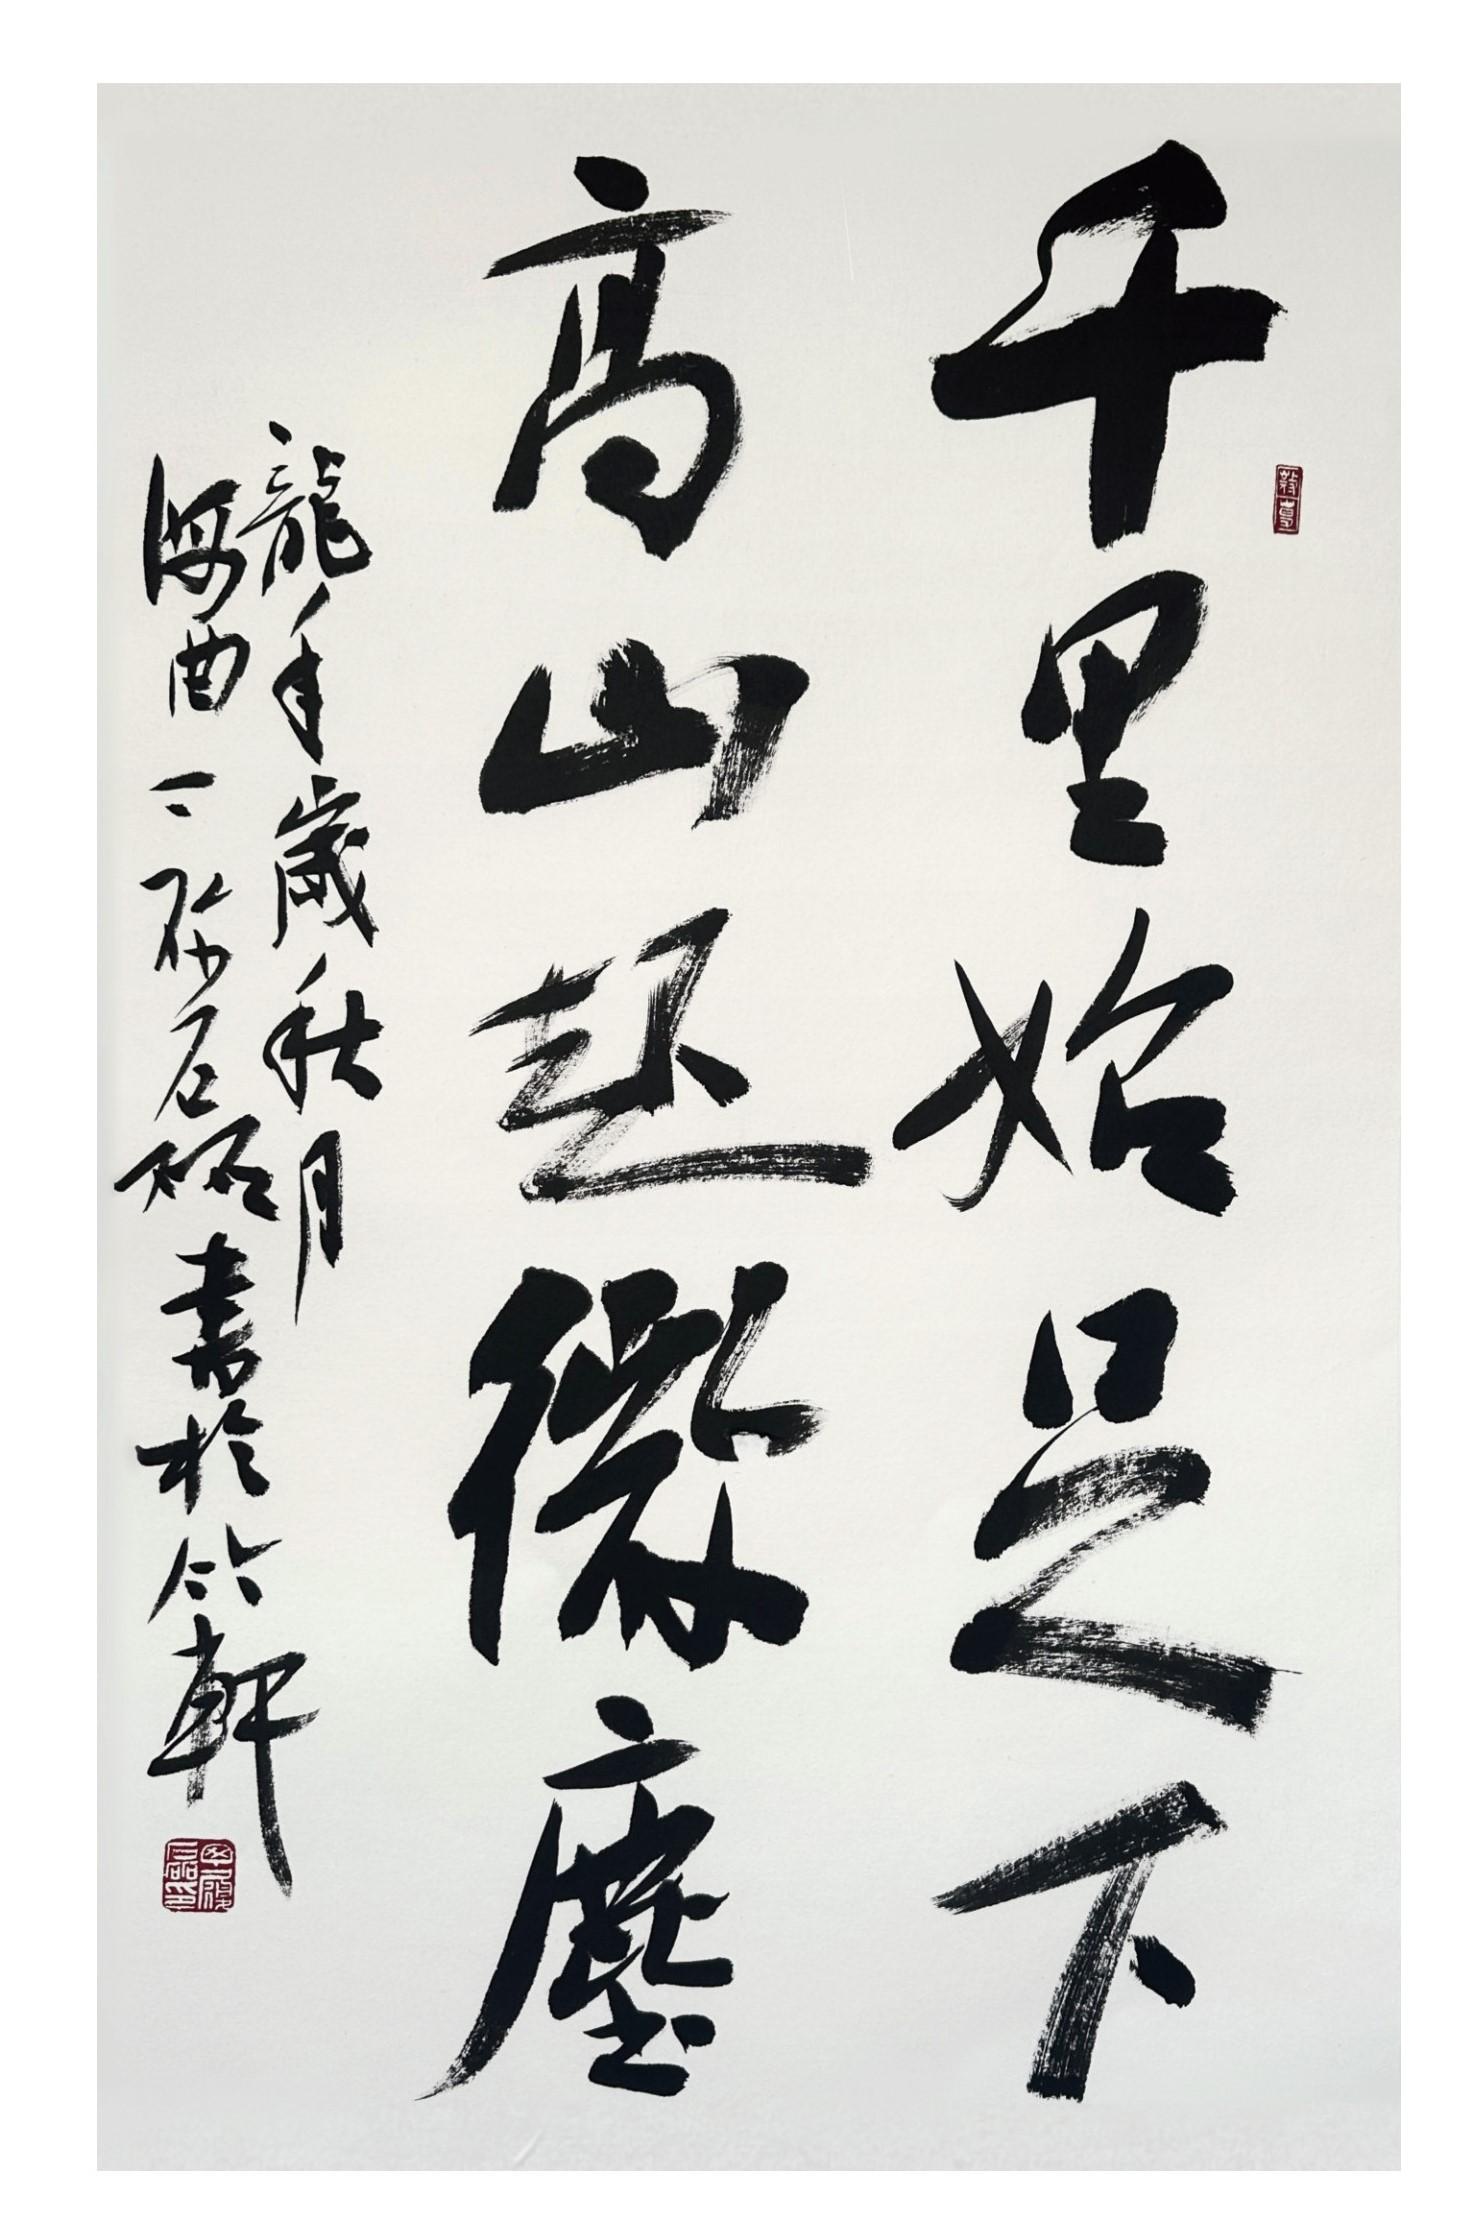 千里始足下
高山起微塵
龍年歲秋月
海曲石書於竹軒